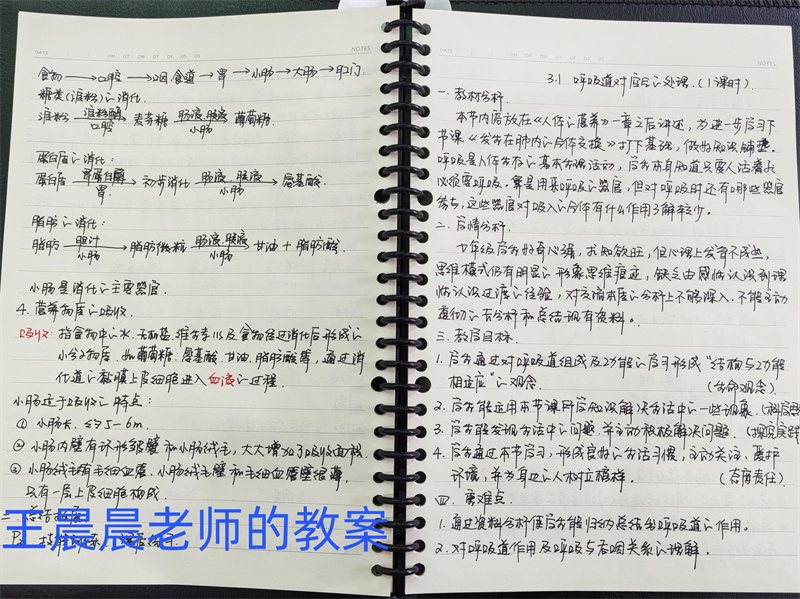 DATE
NOTES
食物→口腔→咽→食道→胃→小肠→大肠→肛门
糖类(淀粉)的消化.
淀粉 淀粉酶 口腔 麦芽糖 肠液、胰液 小肠 葡萄糖.
蛋白质的消化:
蛋白质 胃蛋白酶 胃 初步消化 肠液、胰液 小肠 氨基酸.
脂肪的消化:
脂肪 胆汁 小肠 脂肪微粒 肠液、胰液 小肠 甘油+脂肪酸.
小肠是消化的主要器官.
4. 营养物质的吸收.
吸收: 指食物中的水、无机盐、维生素以及食物经过消化后形成的
小分子物质, 如葡萄糖、氨基酸、甘油、脂肪酸等, 通过消
化道的黏膜上皮细胞进入血液的过程.
小肠适于吸收的特点:
① 小肠长, 5-6m.
② 小肠内壁有环形皱襞和小肠绒毛, 大大增加了吸收面积.
③ 小肠绒毛有毛细血管. 小肠绒毛壁和毛细血管壁很薄,
只有一层上皮细胞构成.
王晨晨老师的教案
NOTES
3.1 呼吸道对空气的处理. (1课时).
一. 教材分析.
本节内容放在《人体的营养》一章之后讲述, 为进一步学习下
节课《发生在肺内的气体交换》打下基础, 做好知识铺垫.
呼吸是人体生存的基本生命活动, 学生本身知道只要人活着就
必须要呼吸, 鼻是用来呼吸的器官, 但对呼吸时还有哪些器官
参与, 这些器官对吸入的气体有什么作用了解较少。
二. 学情分析.
七年级学生好奇心强, 求知欲旺, 但心理上发育不成熟,
思维模式仍有明显的形象思维痕迹, 缺乏由感性认识到理
性认识过渡的经验, 对交流本质的分析上不够深入, 不能主动
直彻的去分析和总结现有资料。
三. 教学目标.
1. 学生通过对呼吸道组成及功能的学习形成"结构与功能
相适应"的观念. (生命观念).
2. 学生能运用本节课所学知识解决生活中的一些现象.
3. 学生能发现生活中的问题, 并主动积极解决问题.
4. 学生通过本节学习, 形成良好的生活习惯, 主动关注、爱护
环境, 并为身边的人树立榜样. (态度责任)
四. 重难点.
1. 通过资料分析使学生能归纳总结出呼吸道的作用.
2. 对呼吸道作用及呼吸与吞咽关系的理解.